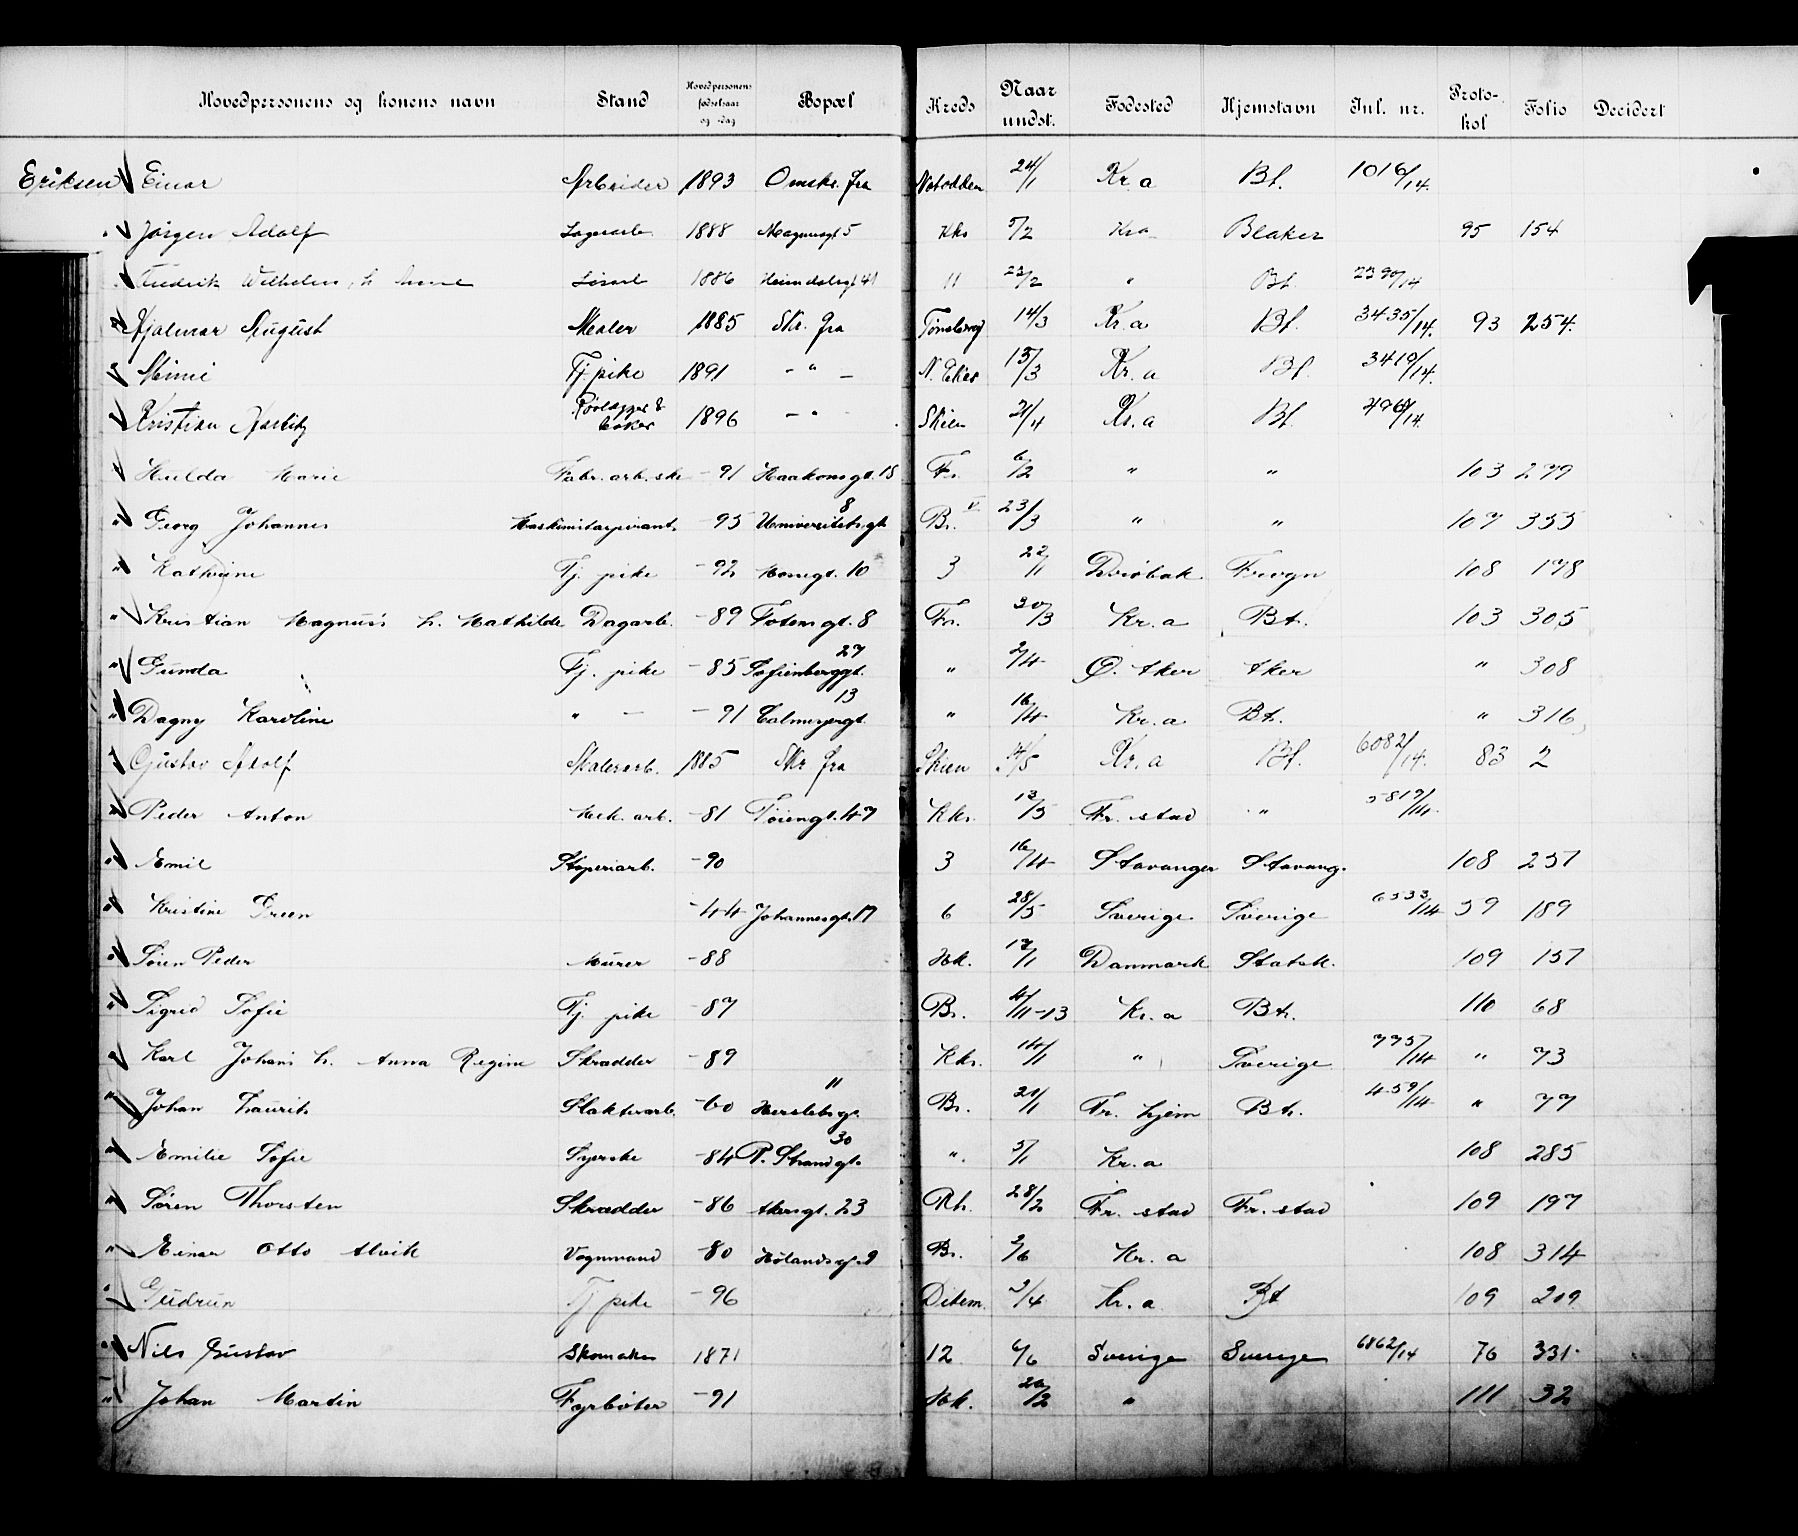 Hovedpersonens og konens navn Stand Hovedpersonens fødselsaar og -dag Bopæl Kreds Naar undst. Fødested Hjemstavn Inl. nr. Proto- kol Folio Decidert
Eriksen Einar Arbeider 1893 Omskr. fra Notodden 24/1 Kr.a Bt. 1016/14.
Jørgen Adolf Lagerarb. 1888 Magnusgt 5 Kks 5/2 Kra Blaker 95 154
Fredrik Wilhelm, h. Løsarb 1886 Heimdalsgt 41 11 23/2 " Bt. 2390/14
Hjalmar August Maler 1885 Skr. fra Tønsberg 14/3 Kr.a Bt. 3435/14. 93 254.
Mimi Tj.pike 1891 - " - N. Eker 15/3 Kr.a Bt. 3410/14.
Kristian 1896 - " Skien 21/4 Kr.a Bt.
" Hulda Marie Fabr. arb. ske -91 Haakonsgt. 15 Fr. 6/2 " " 103 279
" Georg Johannes Maskinistaspirant. -95 Universitetsgt. 8 Br. V. 23/3 " " 107 355
" Kathrine Tj. pike -92 10 3 22/1 Drøbak Frogn 108 178
" Kristian Magnus h. Mathilde Dagarb. -89 Totensgt. 8 Fr. 30/3 Kr.a Bt. 103 305
" Gunda Tj. pike -85 Sofienberggt. 27 " 2/4 Ø. Aker Aker " 308
" Dagny Karoline " - -91 Calmeyergt. 13 " 16/4 Kr.a Bt. " 316
Gustav Adolf Malerarb. 1885 Skr fra Skien 14/5 Kr.a Bt. 6082/14. 83 2
" Peder Anton Mek. arb. -81 Tøiengt. 47 Kks. 13/5 Fr. stad " 5819/14.
" Emil Støperiarb. -90 3 16/4 Stavanger Stavang. 108 251
" Kristine Green -44 Johannesgt. 17 6 28/5 Sverige Sverige 6533/14 59 189
" Søren Peder Murer -88 Hk. 17/1 Danmark Statsk. 109 157
" Sigrid Sofie Tj. pike -87 Br. 4/11-13 Kr.a Bt. 110 68
" Karl Johan h. Anna Regine Skrædder -89 Kks. 14/1 " Sverige 775/14 " 73
" Johan Laurits Slakterarb. -60 Herslebsgt. 11 Br. 21/1 Fr. hjem Bt. 459/14 " 77
" Emilie Sofie Syerske -84 P. Strandgt. 30 ". 5/1 Kr.a 108 285
" Søren Thorsten Skrædder -86 Akersgt. 23 Rh. 28/2 Fr. stad Fr. stad 109 197
" Einar Otto Alvik Vognmand -80 Hølandsgt. 9 Br. 2/6 Kr.a 108 314
" Gudrun Tj pike -96 Dikem. 3/4 Kr.a Bt 109 209
" Nils Gustav Skomaker 1871 12 6/6 Sverige Sverige 6862/14 76 331
" Johan Martin Fyrbøter -91 Hk. 20/2 " 111 32